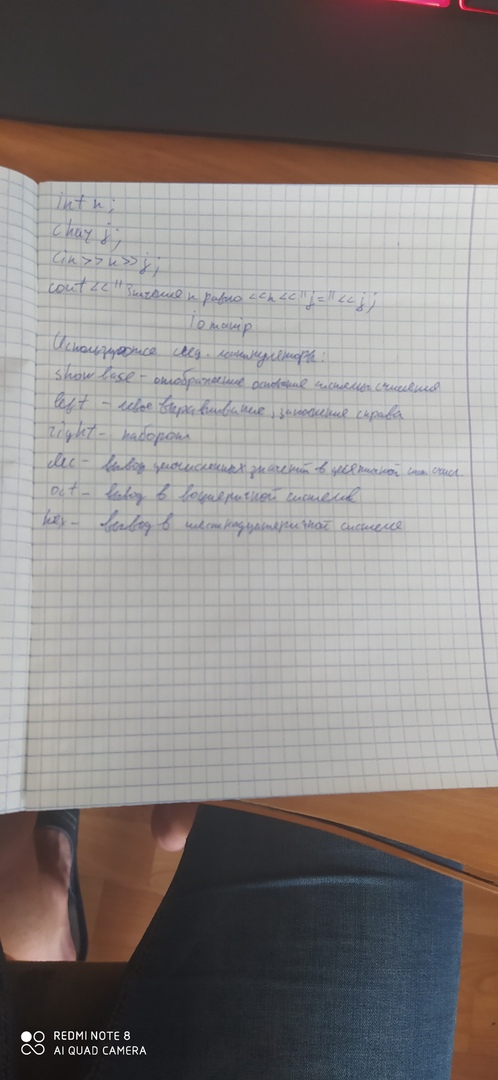 int n;
char j;
cin>>n>>j;
cout<<"Значение n равно <<n<<"j="<<j;
iomanip
Используются след. манипуляторы:
showbase - отображение основания системы счисления
left - левое выравнивание, заполнение справа
right - наоборот
dec - вывод целочисленных значений в десятичной сист. счисл.
oct - вывод в восьмеричной системе
hex - вывод в шестнадцатеричной системе
REDMI NOTE 8
AI QUAD CAMERA